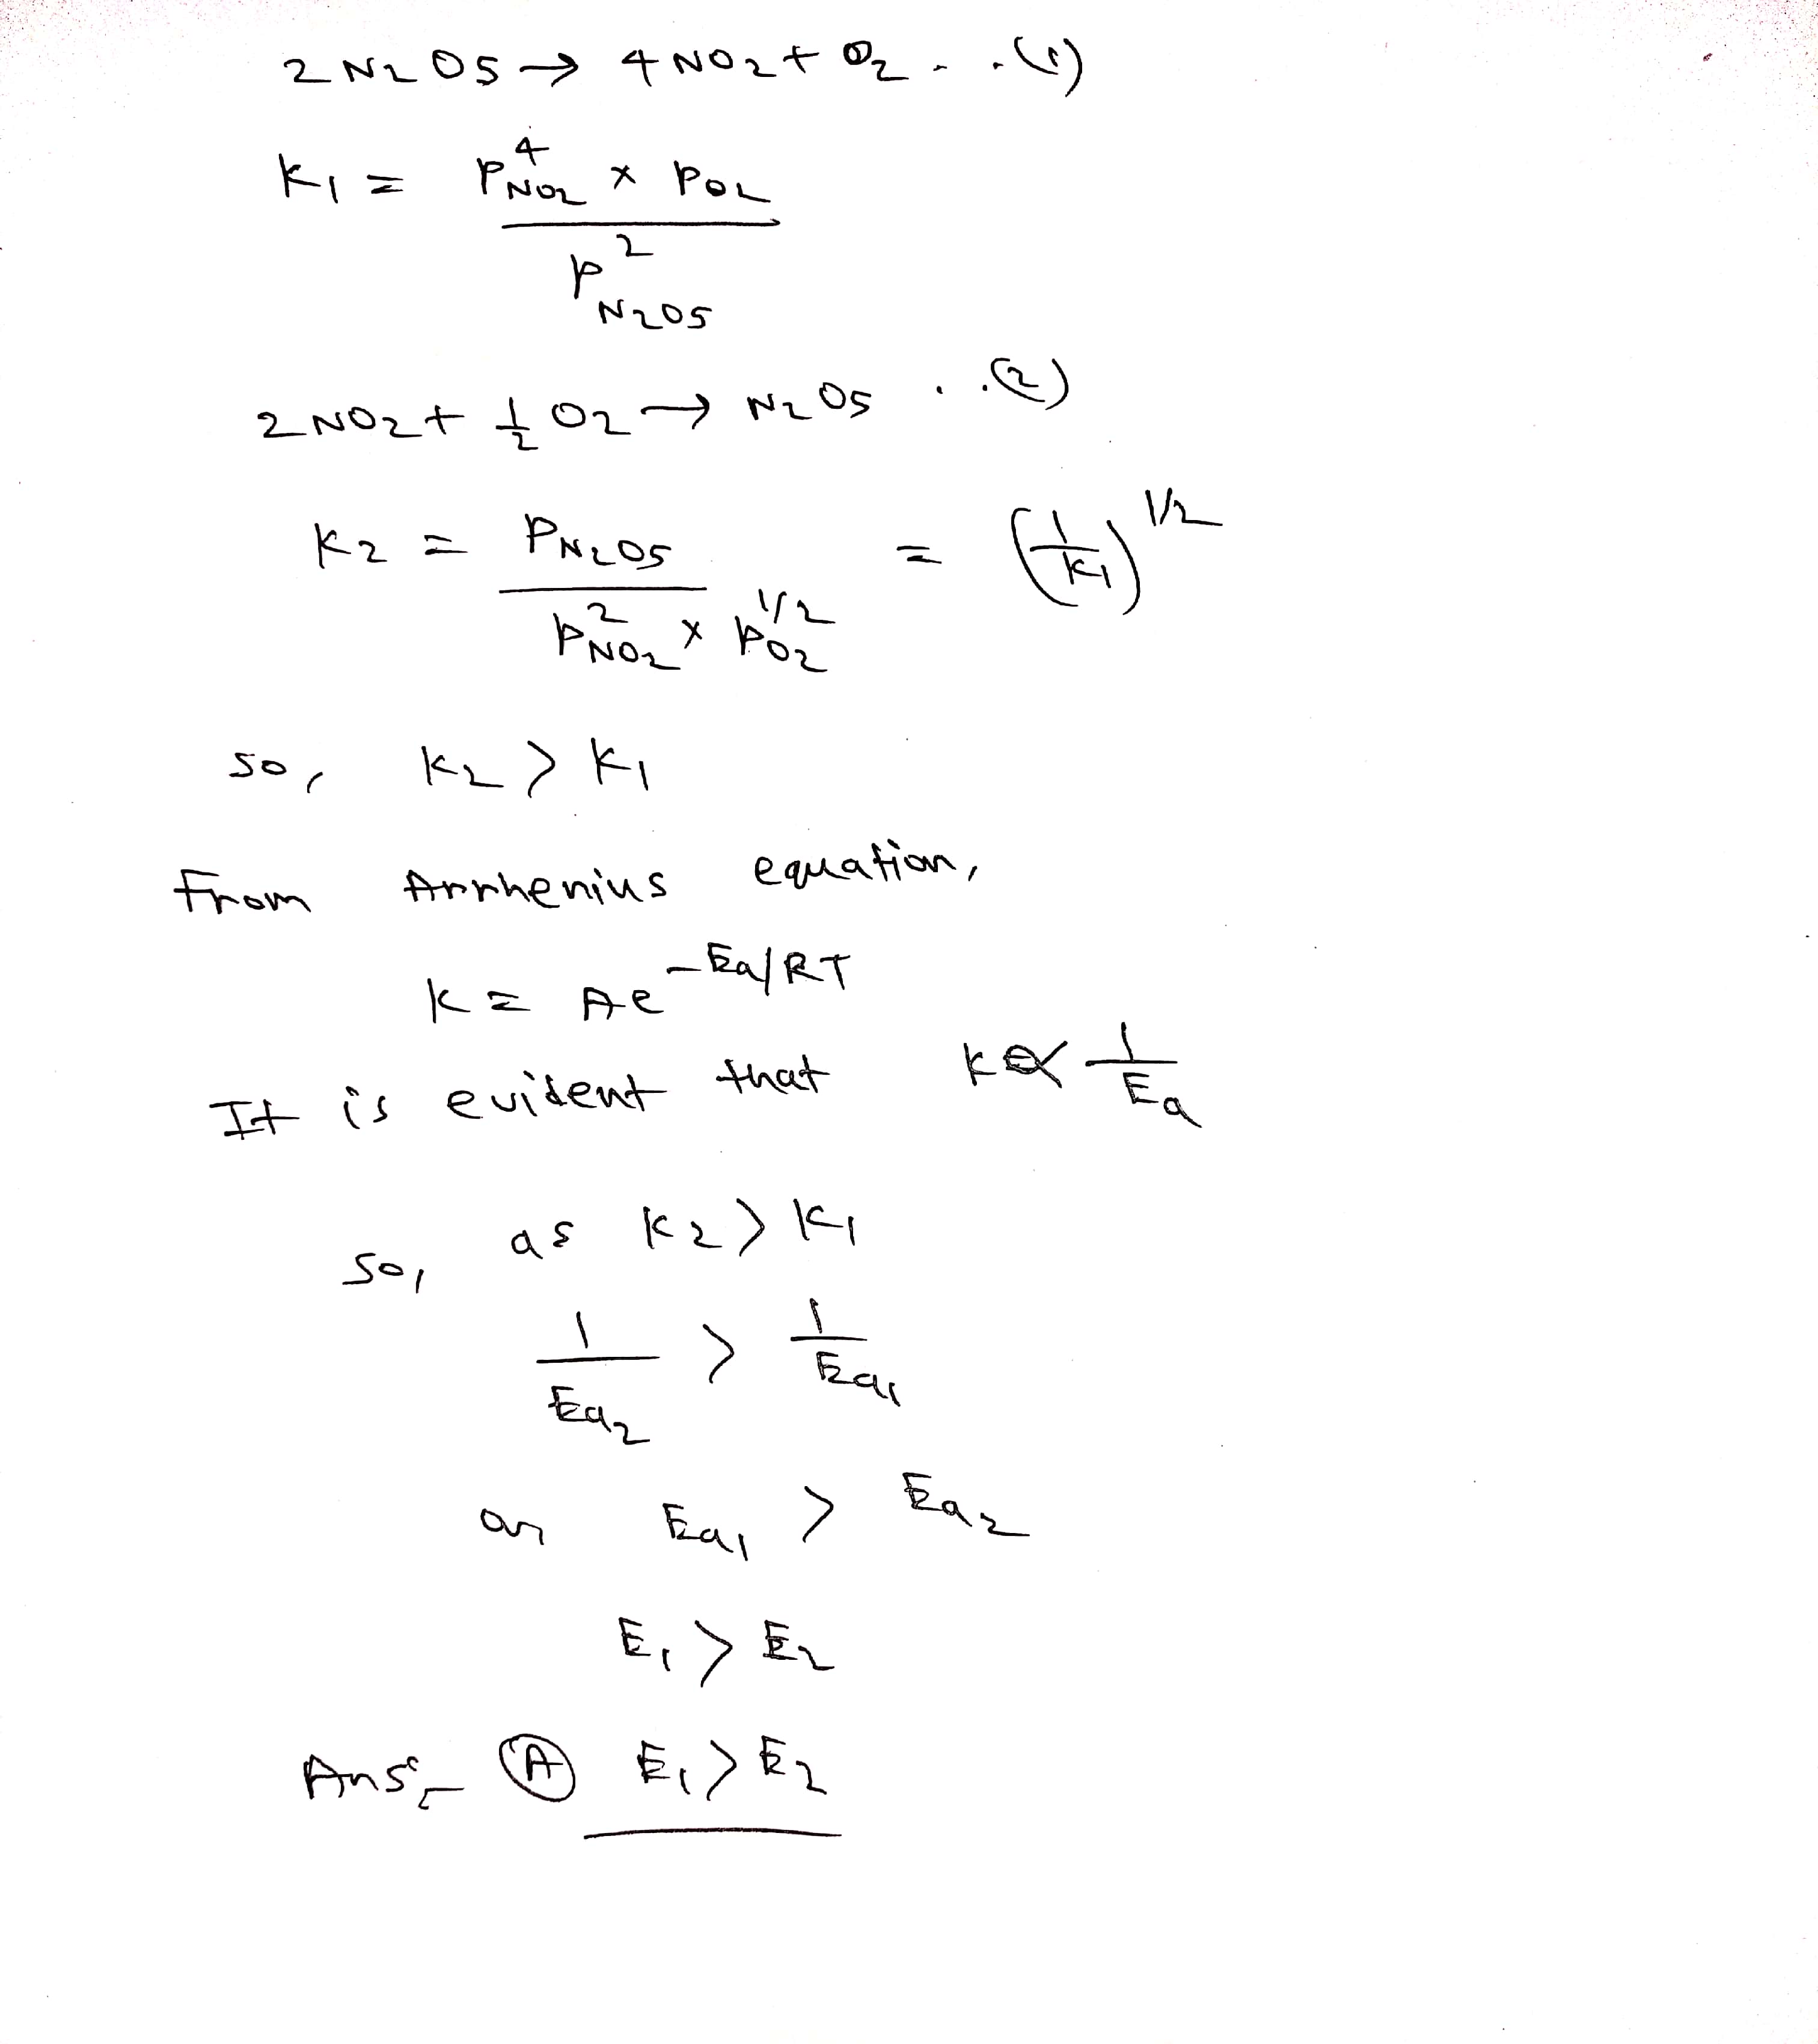 2 N2O5 → 4 NO2 + O2 . . (1)
K1 = P⁴NO2 × PO2 / P²N2O5
2 NO2 + 1/2 O2 → N2O5 . . (2)
K2 = PN2O5 / P²NO2 × P^1/2 O2 = (1/K1)^1/2
so, K2 > K1
From Arrhenius equation,
K = Ae^-Ea/RT
It is evident that K ∝ 1/Ea
so, as K2 > K1
1/Ea2 > 1/Ea1
or Ea1 > Ea2
E1 > E2
Ans:- (A) E1 > E2